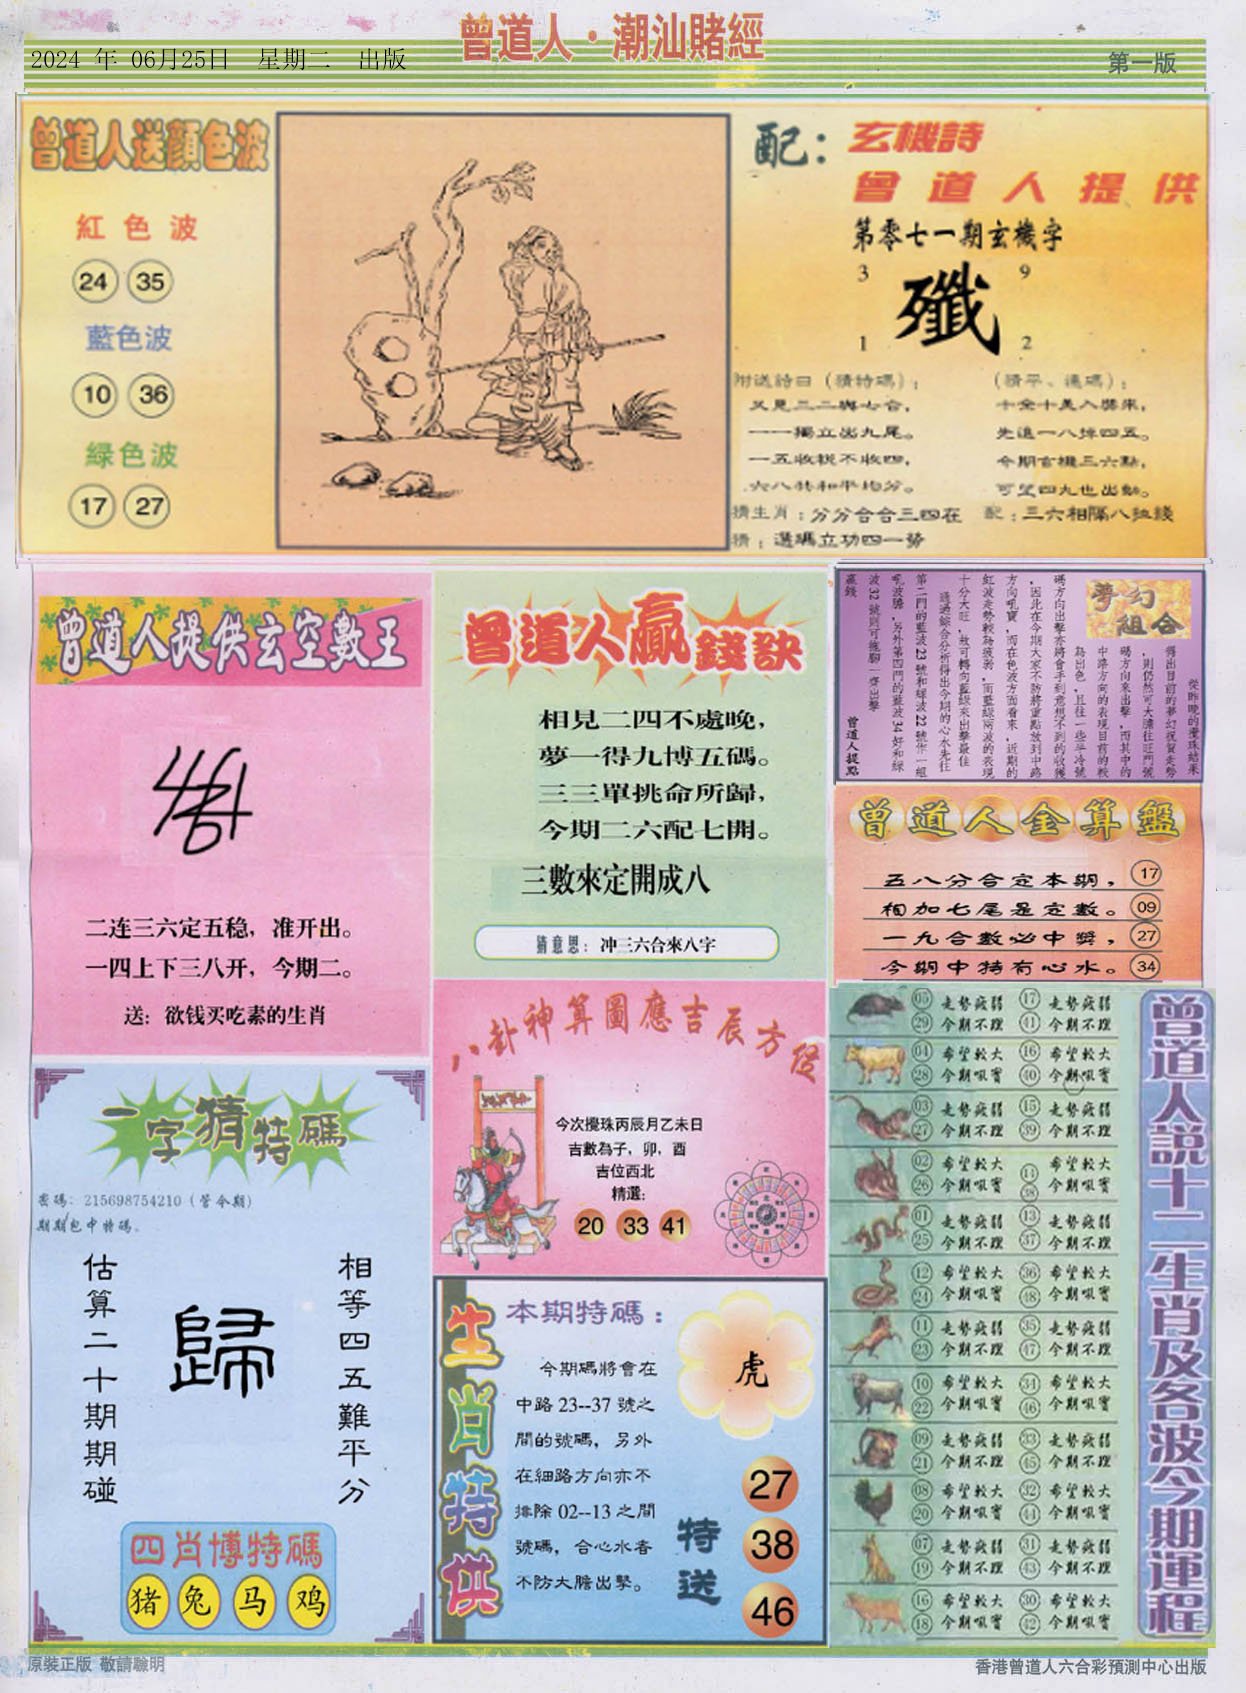 曾道人·潮汕賭經
2024 年 06月25日 星期二 出版
第一版
曾道人送顏色波
紅色波
24 35
藍色波
10 36
綠色波
17 27
配：玄機詩
曾道人提供
第零七一期玄機字
3 9
殲
1 2
附送詩曰（猜特碼）：
又見三二與七合，
一一獨立出九尾。
一五收稅不收四，
六八共和平均分。
（猜平、連碼）：
十全十美入獎來，
先進一八掉四五。
今期玄機三六點，
可望四九也出動。
猜生肖：分分合合三四在
猜：選碼立功四一勢
配：三六相隔八拉錢
曾道人提供玄空數王
二连三六定五稳，准开出。
一四上下三八开，今期二。
送：欲钱买吃素的生肖
曾道人贏錢訣
相見二四不處晚，
夢一得九博五碼。
三三單挑命所歸，
今期二六配七開。
三數來定開成八
猜意思：冲三六合來八字
夢幻組合
從昨晚的攪珠結果
得出目前的夢幻祝賀走勢
，則仍然可大膽往旺門號
碼方向來出擊，而其中的
中路方向的表現目前的較
為出色，且往一些半冷號
碼方向出擊亦將會手到意想不到的收獲
，因此在今期大家不防將重點放到中路
方向吼寶，而在色波方面看來，近期的
紅波走勢較為疲弱，而藍綠兩波的表現
十分大旺，故可轉向藍綠來出擊最佳
通過綜合分析得出今期的心水先往
第二門的藍波23號和綠波22號作一組
吼波膽，另外第四門的藍波34好和綠
波32號則可拖腳一齊出擊
贏錢
曾道人提點
曾道人金算盤
五八分合定本期， 17
相加七尾是定數。 09
一九合數必中獎， 27
今期中特有心水。 34
一字猜特碼
密碼：215698754210（管今期）
期期包中特碼。
相等四五難平分
歸
估算二十期期碰
四肖博特碼
猪 兔 马 鸡
八卦神算圖應吉辰方位
今次攪珠丙辰月乙未日
吉數為子，卯，酉
吉位西北
精選：
20 33 41
生肖特供
本期特碼：
今期碼將會在
中路23--37 號之
間的號碼，另外
在細路方向亦不
排除 02--13 之間
號碼，合心水者
不防大膽出擊。
虎
特送
27
38
46
曾道人説十二生肖及各波今期運程
05 走勢疲弱 17 走勢疲弱
29 今期不理 41 今期不理
04 希望較大 16 希望較大
28 今期吼寶 40 今期吼寶
03 走勢疲弱 15 走勢疲弱
27 今期不理 39 今期不理
02 希望較大 14 希望較大
26 今期吼寶 38 今期吼寶
01 走勢疲弱 13 走勢疲弱
25 今期不理 37 今期不理
12 希望較大 36 希望較大
24 今期吼寶 48 今期吼寶
11 走勢疲弱 35 走勢疲弱
23 今期不理 47 今期不理
10 希望較大 34 希望較大
22 今期吼寶 46 今期吼寶
09 走勢疲弱 33 走勢疲弱
21 今期不理 45 今期不理
08 希望較大 32 希望較大
20 今期吼寶 44 今期吼寶
07 走勢疲弱 31 走勢疲弱
19 今期不理 43 今期不理
16 希望較大 30 希望較大
18 今期吼寶 42 今期吼寶
原裝正版 敬請聰明
香港曾道人六合彩預測中心出版